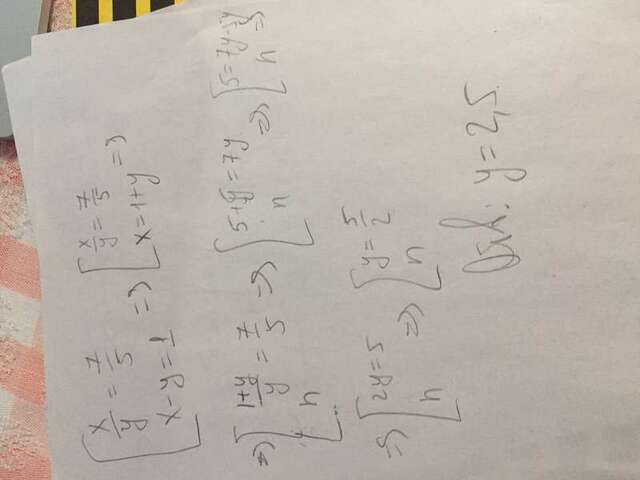 x/y = 7/5
x-y=1 => x/y = 7/5
x=1+y =>
=> 1+y/y = 7/5
n => 5+5y=7y
n => 5=7y-5y
n =>
=> 2y=5
n => y= 5/2
n
y=2,5